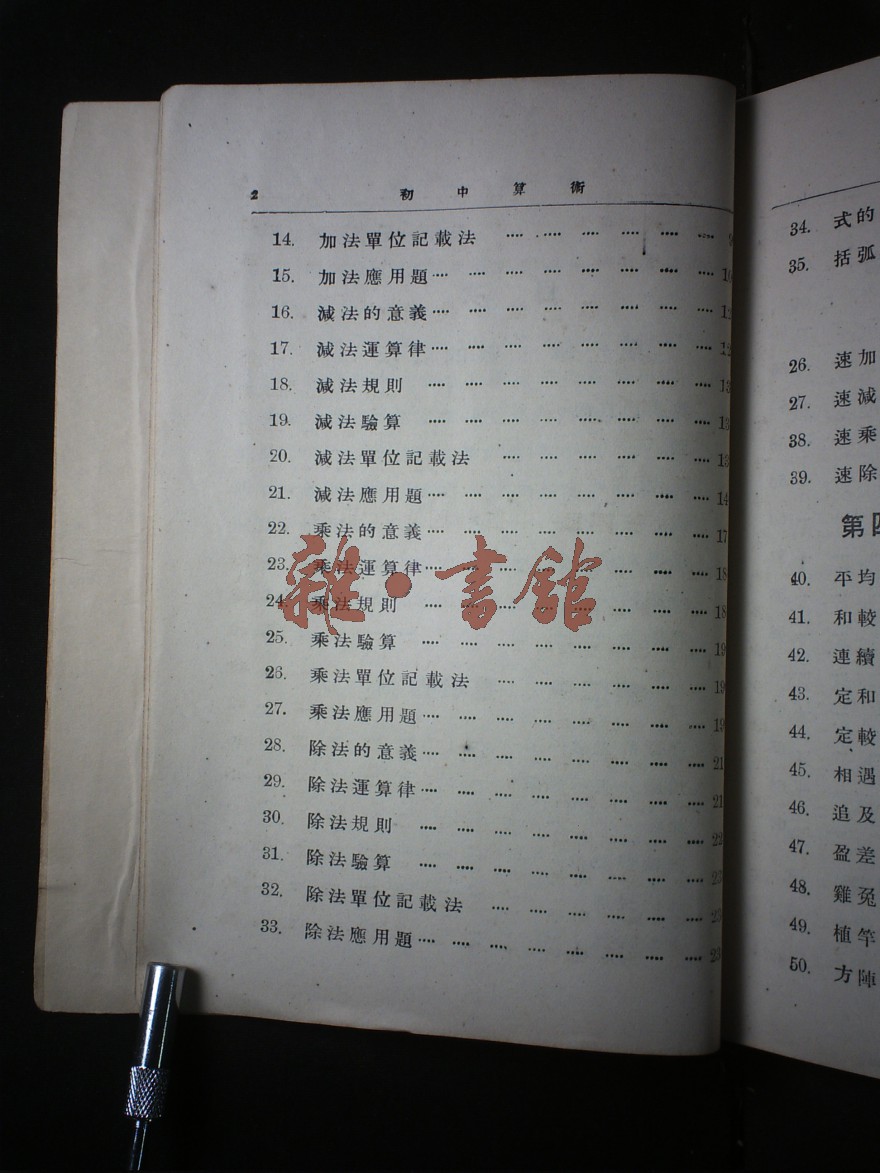 2 初中算術
14. 加法單位記載法 …… …… …… …… …… ……
15. 加法應用題 …… …… …… …… …… …… …… …… 10
16. 減法的意義 …… …… …… …… …… …… …… ……
17. 減法運算律 …… …… …… …… …… …… …… …… 12
18. 減法規則 …… …… …… …… …… …… …… …… 13
19. 減法驗算 …… …… …… …… …… …… …… …… 13
20. 減法單位記載法 …… …… …… …… …… …… 13
21. 減法應用題 …… …… …… …… …… …… …… …… 14
22. 乘法的意義 …… …… …… …… …… …… …… …… 17
23. 乘法運算律 …… …… …… …… …… …… …… …… 18
24. 乘法規則 …… …… …… …… …… …… …… …… 18
25. 乘法驗算 …… …… …… …… …… …… …… …… 19
26. 乘法單位記載法 …… …… …… …… …… …… 19
27. 乘法應用題 …… …… …… …… …… …… …… …… 19
28. 除法的意義 …… …… …… …… …… …… …… 21
29. 除法運算律 …… …… …… …… …… …… …… …… 21
30. 除法規則 …… …… …… …… …… …… …… …… 22
31. 除法驗算 …… …… …… …… …… …… …… …… 23
32. 除法單位記載法 …… …… …… …… …… …… 23
33. 除法應用題 …… …… …… …… …… …… …… …… 23
雜·書館
34. 式的
35. 括弧
26. 速加
27. 速減
38. 速乘
39. 速除
第四
40. 平均
41. 和較
42. 連續
43. 定和
44. 定較
45. 相遇
46. 追及
47. 盈差
48. 雞兔
49. 植竿
50. 方陣